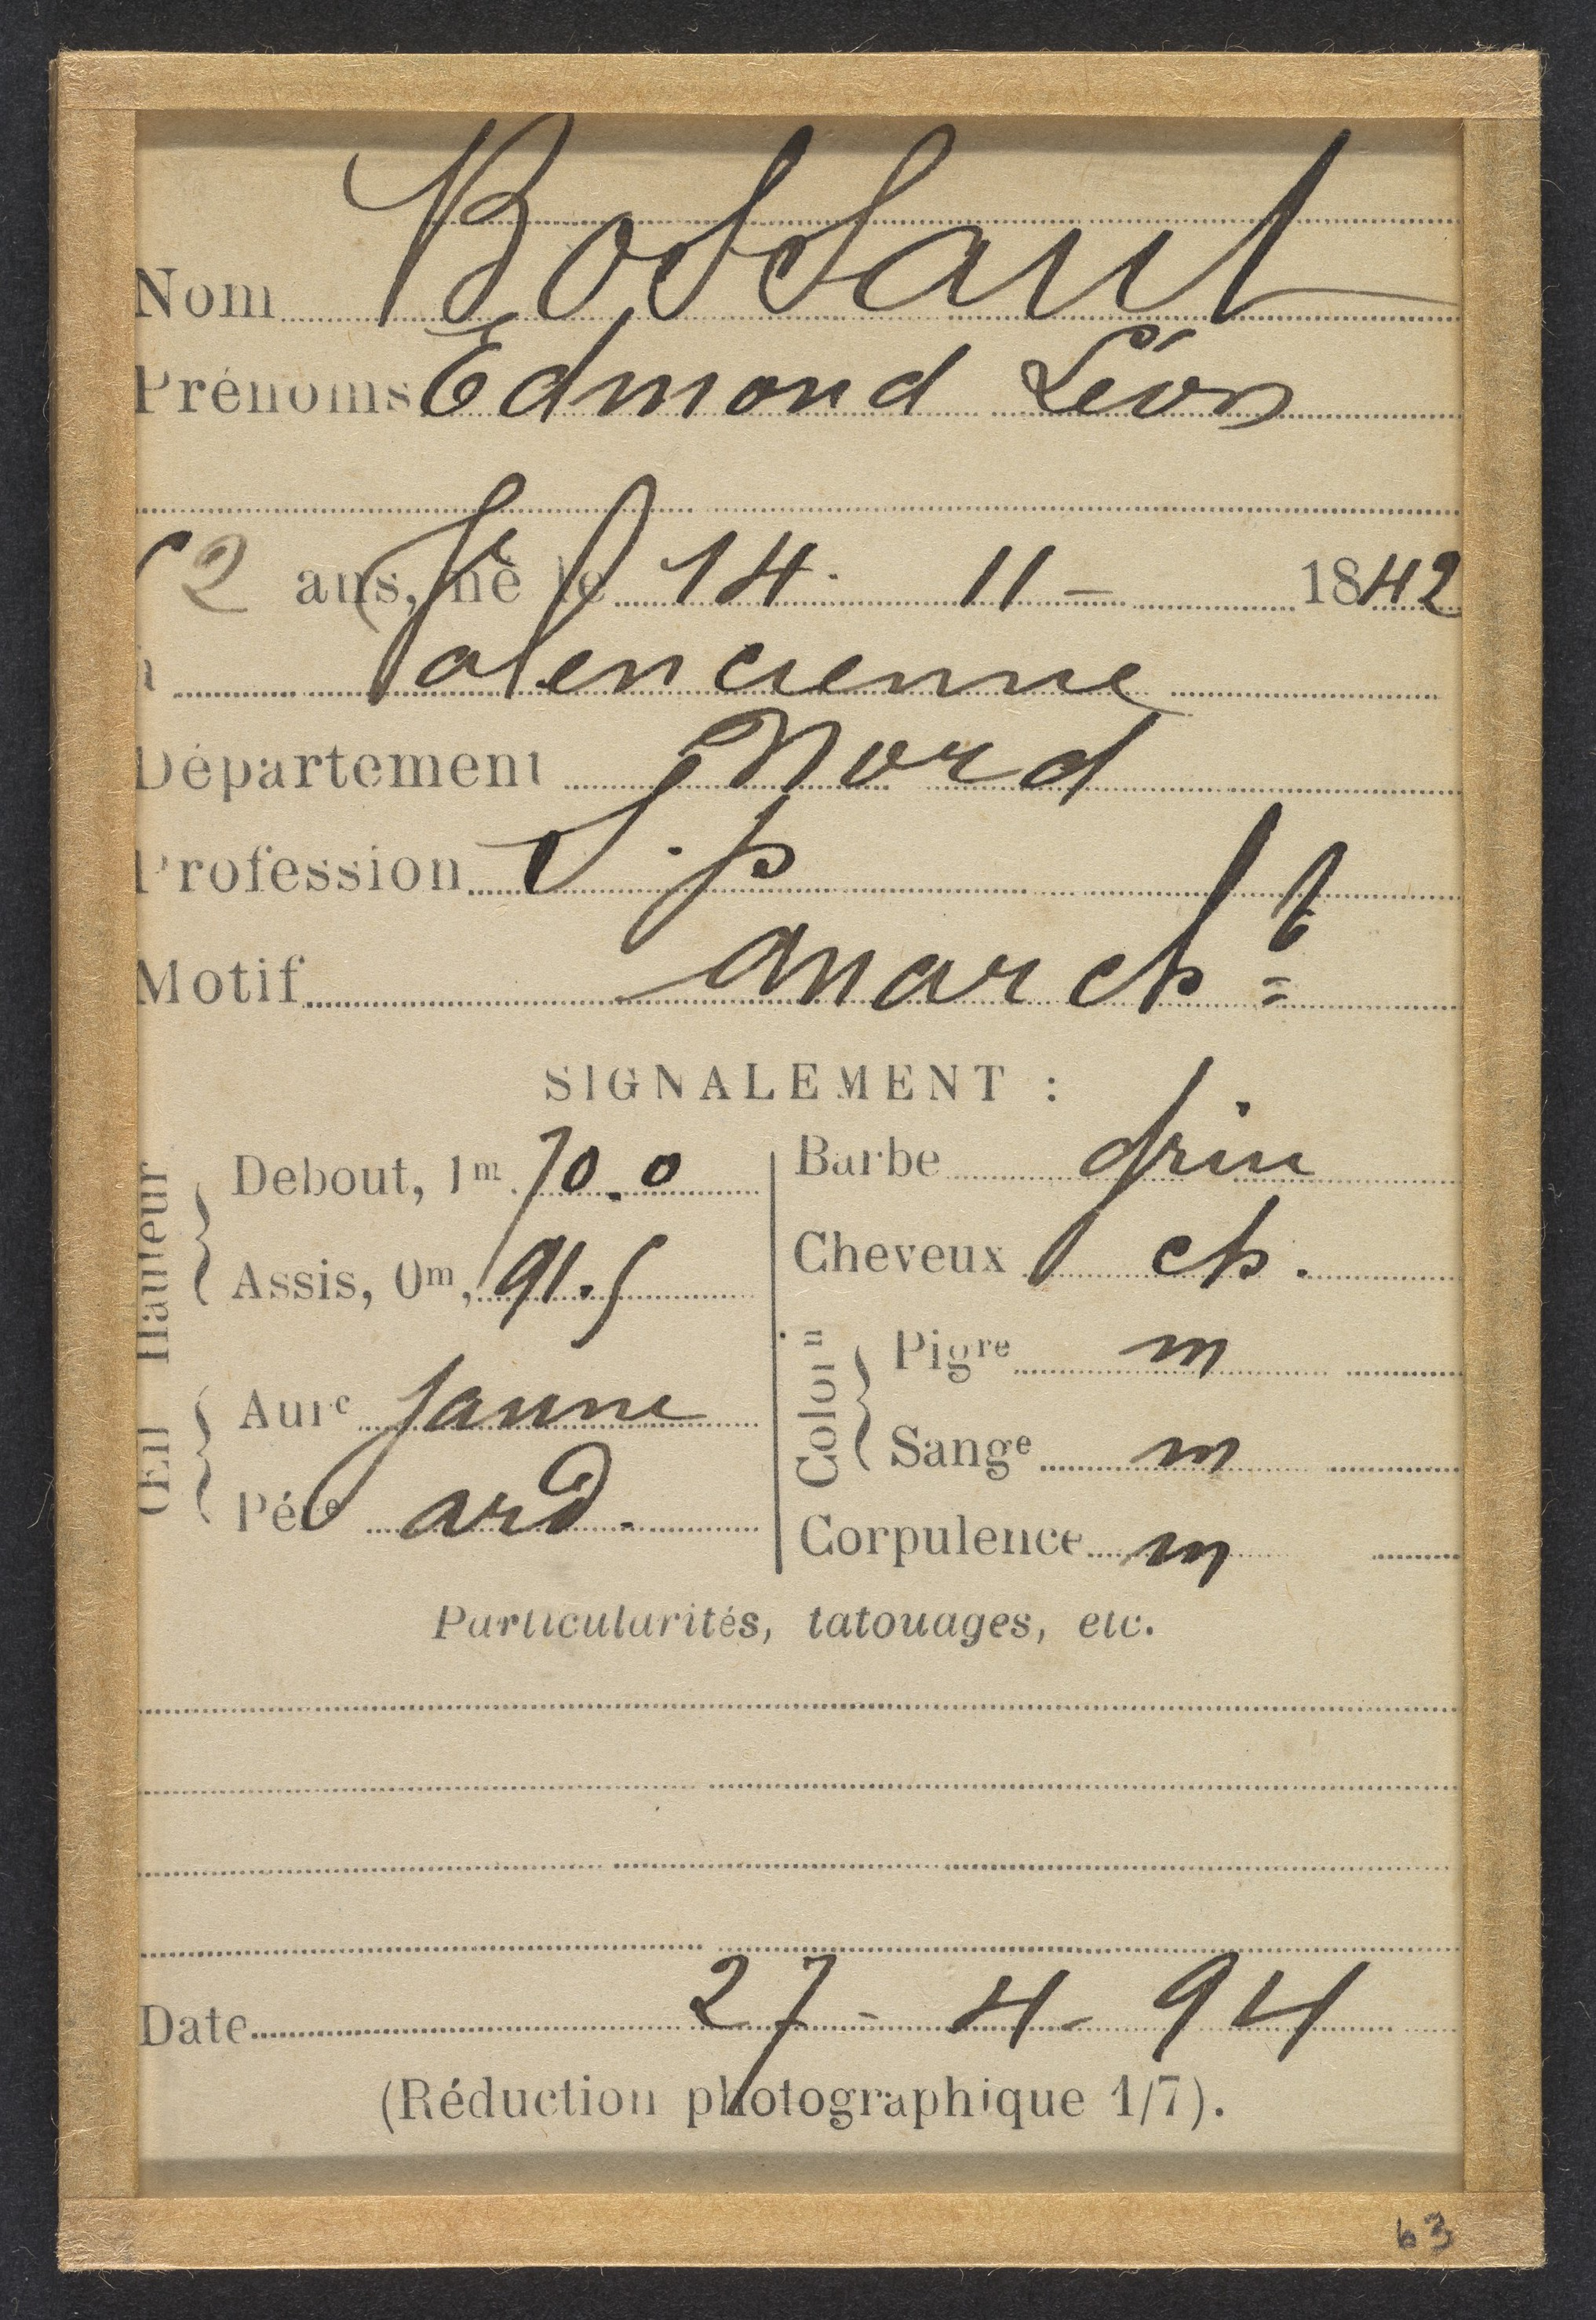 Nom Bossant
Prénoms Edmond Léon
52 ans, né le 14. 11 - 1842
à Valencienne
Département Nord
Profession S. p
Motif anarch t
SIGNALEMENT :
Hauteur
Debout, 1m. 70.0
Assis, 0m, 91.5
Œil
Aure jaune
Pére ard.
Barbe grise
Cheveux ch.
Colon
Pigre m
Sange m
Corpulence m
Particularités, tatouages, etc.
Date 27 - 4 - 94
(Réduction photographique 1/7).
63